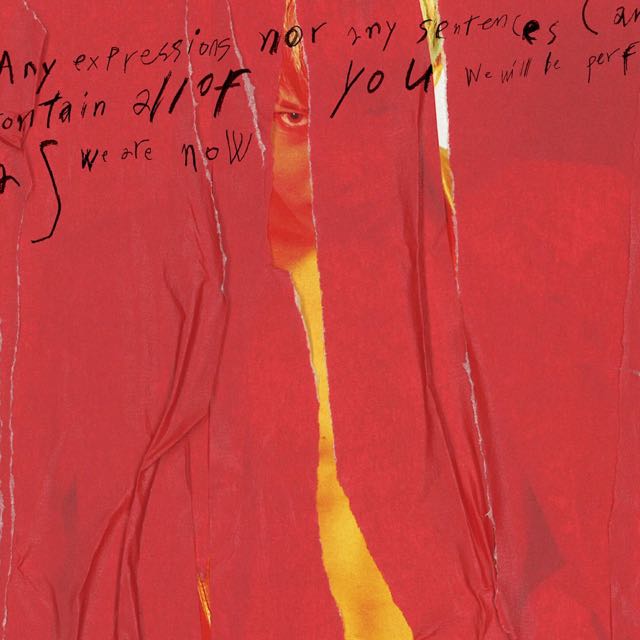 Any expressions nor any sentences can
contain all of you We will be perf
as we are now